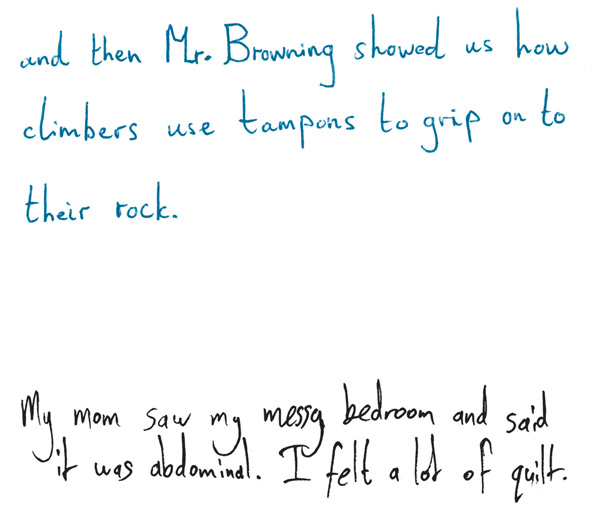 and then Mr. Browning showed us how
climbers use tampons to grip on to
their rock.
My mom saw my messy bedroom and said
it was abdominal. I felt a lot of quilt.